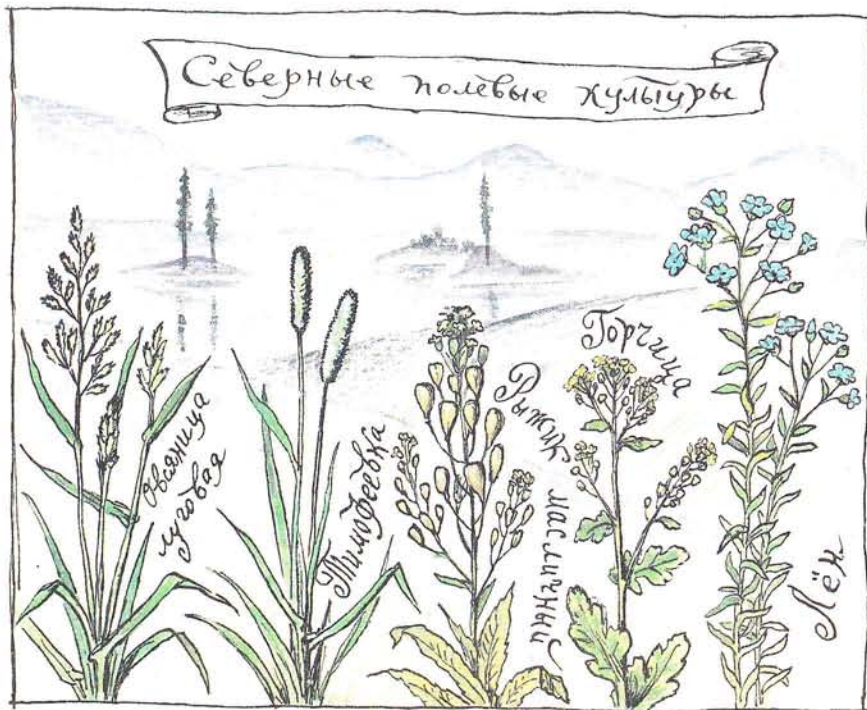 Северные полевые культуры
Овсяница
луговая
Тимофеевка
Рыжик
масличный
Горчица
Лён